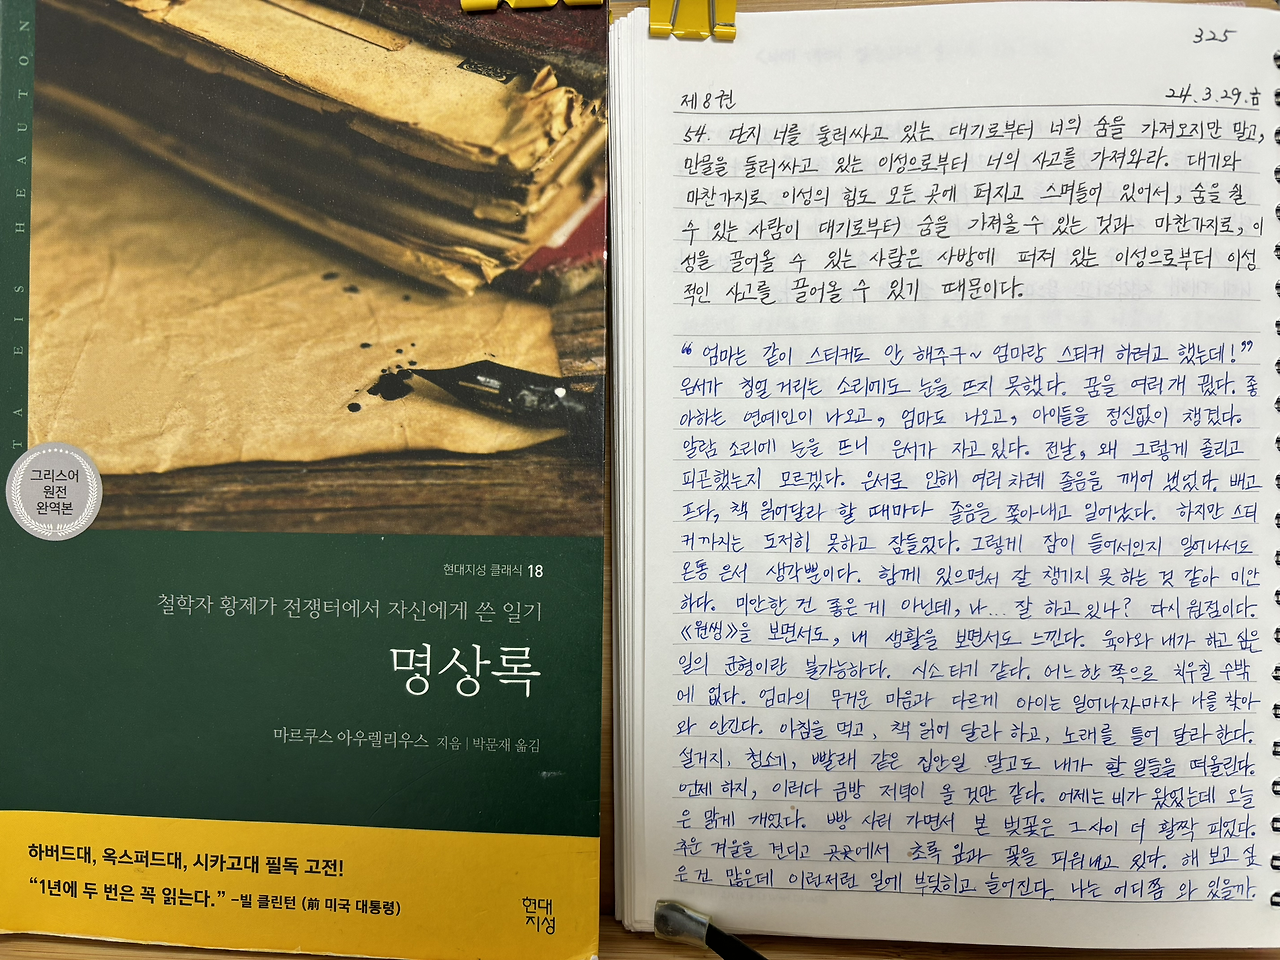 TA EIS HEAUTON
그리스어
원전
완역본
현대지성 클래식 18
철학자 황제가 전쟁터에서 자신에게 쓴 일기
명상록
마르쿠스 아우렐리우스 지음 | 박문재 옮김
하버드대, 옥스퍼드대, 시카고대 필독 고전!
“1년에 두 번은 꼭 읽는다.” –빌 클린턴 (前 미국 대통령)
현대
지성
325
제8권 24.3.29.금
54. 단지 너를 둘러싸고 있는 대기로부터 너의 숨을 가져오지만 말고,
만물을 둘러싸고 있는 이성으로부터 너의 사고를 가져와라. 대기와
마찬가지로 이성의 힘도 모든 곳에 퍼지고 스며들어 있어서, 숨을 쉴
수 있는 사람이 대기로부터 숨을 가져올 수 있는 것과 마찬가지로, 이
성을 끌어올 수 있는 사람은 사방에 퍼져 있는 이성으로부터 이성
적인 사고를 끌어올 수 있기 때문이다.
“엄마는 같이 스티커도 안 해주구~ 엄마랑 스티커 하려고 했는데!”
은서가 칭얼 거리는 소리에도 눈을 뜨지 못했다. 꿈을 여러 개 꿨다. 좋
아하는 연예인이 나오고, 엄마도 나오고, 아이들을 정신없이 챙겼다.
알람 소리에 눈을 뜨니 은서가 자고 있다. 전날, 왜 그렇게 졸리고
피곤했는지 모르겠다. 은서로 인해 여러 차례 졸음을 깨어 냈었다. 배고
프다, 책 읽어달라 할 때마다 졸음을 쫓아내고 일어났다. 하지만 스티
커까지는 도저히 못하고 잠들었다. 그렇게 잠이 들어서인지 일어나서도
온통 은서 생각뿐이다. 함께 있으면서 잘 챙기지 못 하는 것 같아 미안
하다. 미안한 건 좋은 게 아닌데, 나... 잘 하고 있나? 다시 원점이다.
《원씽》을 보면서도, 내 생활을 보면서도 느낀다. 육아와 내가 하고 싶은
일의 균형이란 불가능하다. 시소 타기 같다. 어느 한 쪽으로 치우칠 수밖
에 없다. 엄마의 무거운 마음과 다르게 아이는 일어나자마자 나를 찾아
와 안긴다. 아침을 먹고, 책 읽어 달라 하고, 노래를 틀어 달라 한다.
설거지, 청소기, 빨래 같은 집안일 말고도 내가 할 일들을 떠올린다.
언제 하지, 이러다 금방 저녁이 올 것만 같다. 어제는 비가 왔었는데 오늘
은 맑게 개었다. 빵 사러 가면서 본 벚꽃은 그사이 더 활짝 피었다.
추운 겨울을 견디고 곳곳에서 초록 잎과 꽃을 피워내고 있다. 해 보고 싶
은 건 많은데 이런저런 일에 부딪히고 늘어진다. 나는 어디쯤 와 있을까.